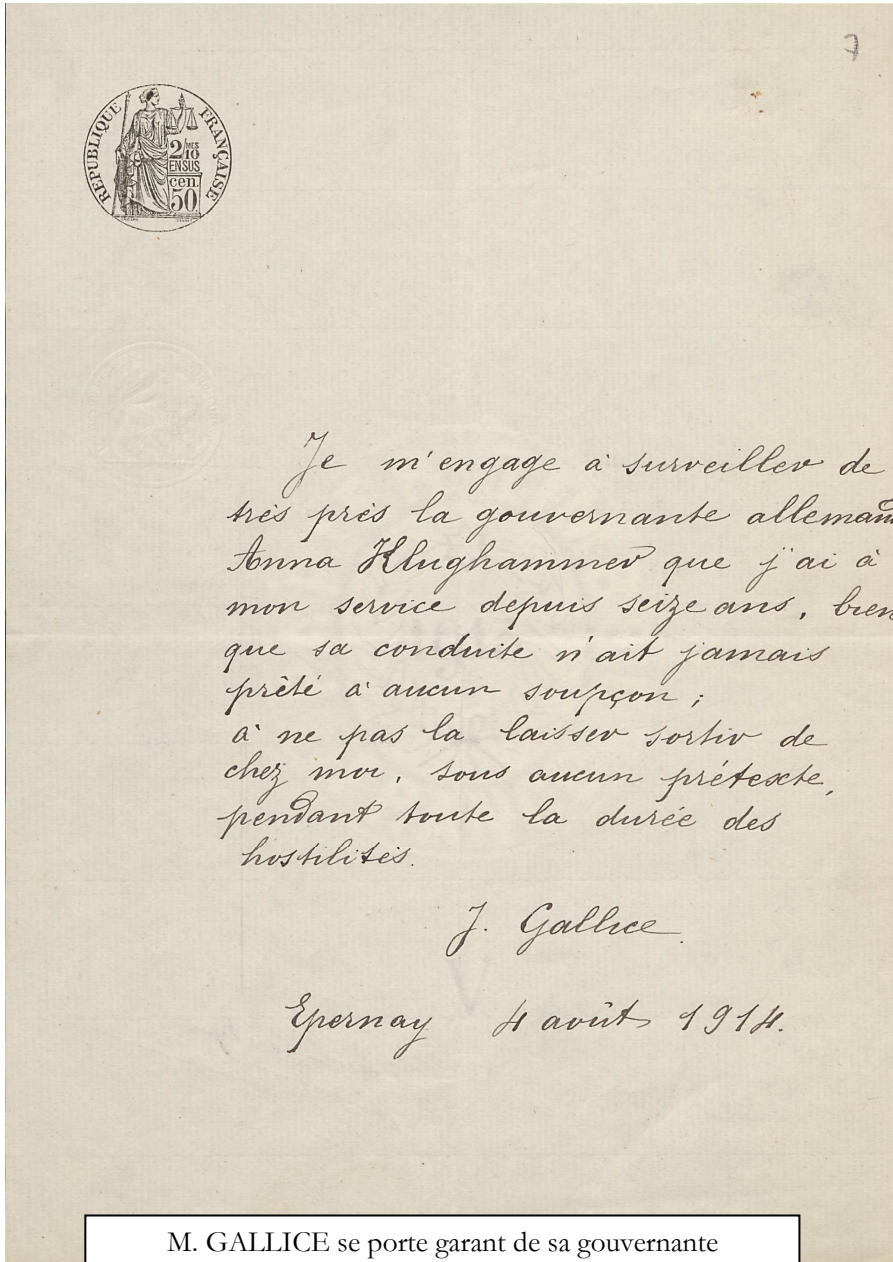 RÉPUBLIQUE FRANÇAISE
2/MES
10
EN SUS
cen.
50
Je m'engage à surveiller de
très près la gouvernante alleman
Anna Klughammer que j'ai à
mon service depuis seize ans, bien
que sa conduite n'ait jamais
prêté à aucun soupçon ;
à ne pas la laisser sortir de
chez moi, sous aucun prétexte,
pendant toute la durée des
hostilités.
J. Gallice
Epernay 4 août 1914.
M. GALLICE se porte garant de sa gouvernante